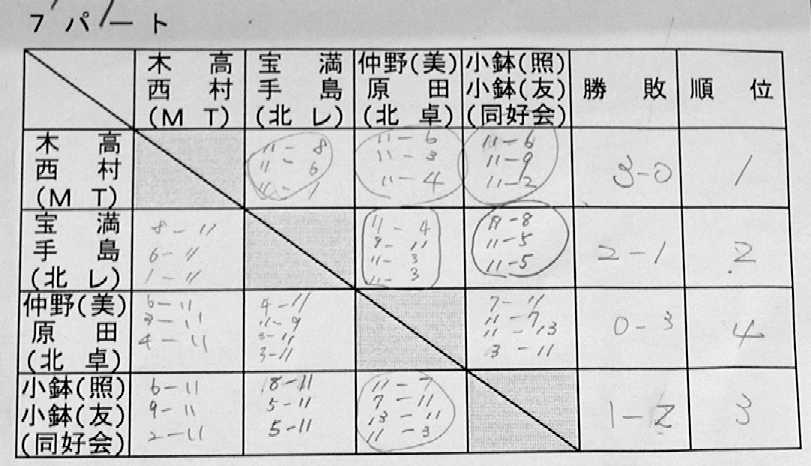 7 パ ー ト
木 高 西 村 (M T) 宝 満 手 島 (北 レ) 仲野(美) 原 田 (北 卓) 小鉢(照) 小鉢(友) (同好会) 勝 敗 順 位
木 高 11-8 11-6 11-6
西 村 11-6 11-3 11-9 3-0 1
(M T) 11-1 11-4 11-2
宝 満 8-11 11-4 11-8
手 島 6-11 9-11 11-5 2-1 2
(北 レ) 1-11 11-3 11-5
11-3
仲野(美) 6-11 4-11 7-11
原 田 3-11 11-9 11-7 0-3 4
(北 卓) 4-11 3-11 11-13
3-11 3-11
小鉢(照) 6-11 8-11 11-7
小鉢(友) 9-11 5-11 7-11 1-2 3
(同好会) 2-11 5-11 13-11
11-3